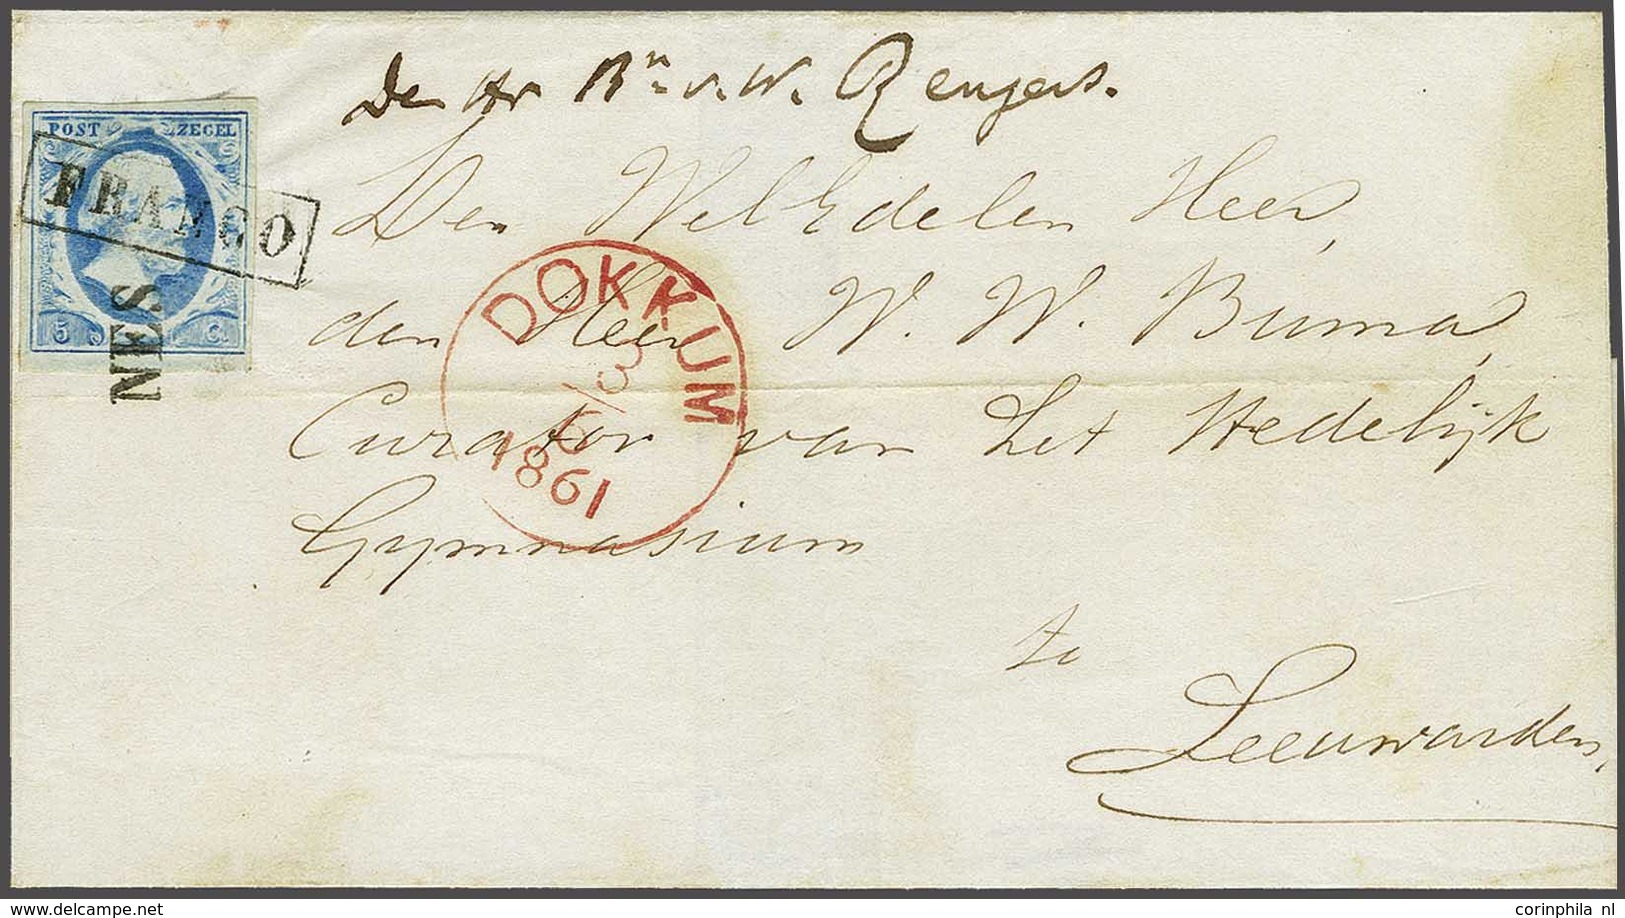 Den Hr Bn v. W. Rengers.
POST ZEGEL
FRANCO
5 C.
NES
DOKKUM
1861
Den WelEdelen Heer,
den Heer W. W. Buma,
Curator van het Stedelijk
Gymnasium
te
Leeuwarden,
corinphila nl